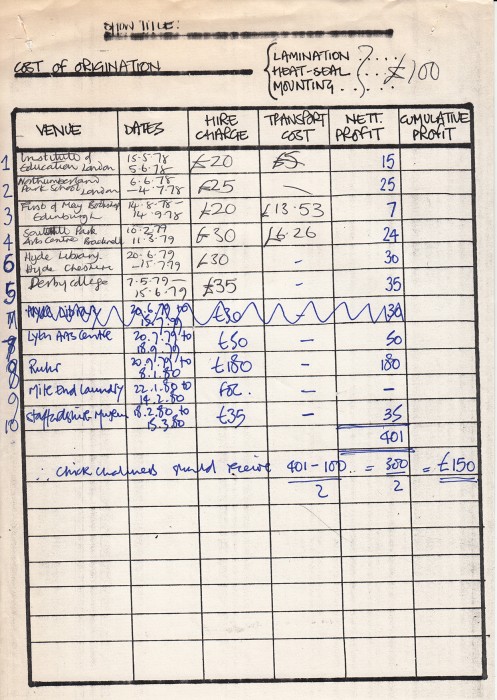 SHOW TITLE:
COST OF ORIGINATION
LAMINATION ....
HEAT-SEAL ... £100
MOUNTING ...
VENUE DATES HIRE CHARGE TRANSPORT COST NETT. PROFIT CUMULATIVE PROFIT
1 Institute of Education London 15.5.78 5.6.78 £20 £5 15
2 Northumberland Park School London 6.6.78 – 4.7.78 £25 – 25
3 First of May Bookshop Edinburgh 14.8.78 – 14.9.78 £20 £13.53 7
4 South Hill Park Arts Centre Bracknell 10.2.79 11.3.79 £30 £6.26 24
6 Hyde Library Hyde Cheshire 20.6.79 – 15.7.79 £30 – 30
5 Derby College 7.5.79 – 15.6.79 £35 – 35
Hyde Library 20.6.79 to 15.7.79 £30 – 30
7 Arts Centre 20.7.79 to 18.9.79 £50 – 50
8 Ruhr 20.9.79 to 8.1.80 £180 – 180
9 Mile End Laundry 22.1.80 to 14.2.80 foc. – –
10 Staffordshire Museum 18.2.80 to 15.3.80 £35 – 35
401
∴ should receive 401 – 100 = 300 = £150
2 2